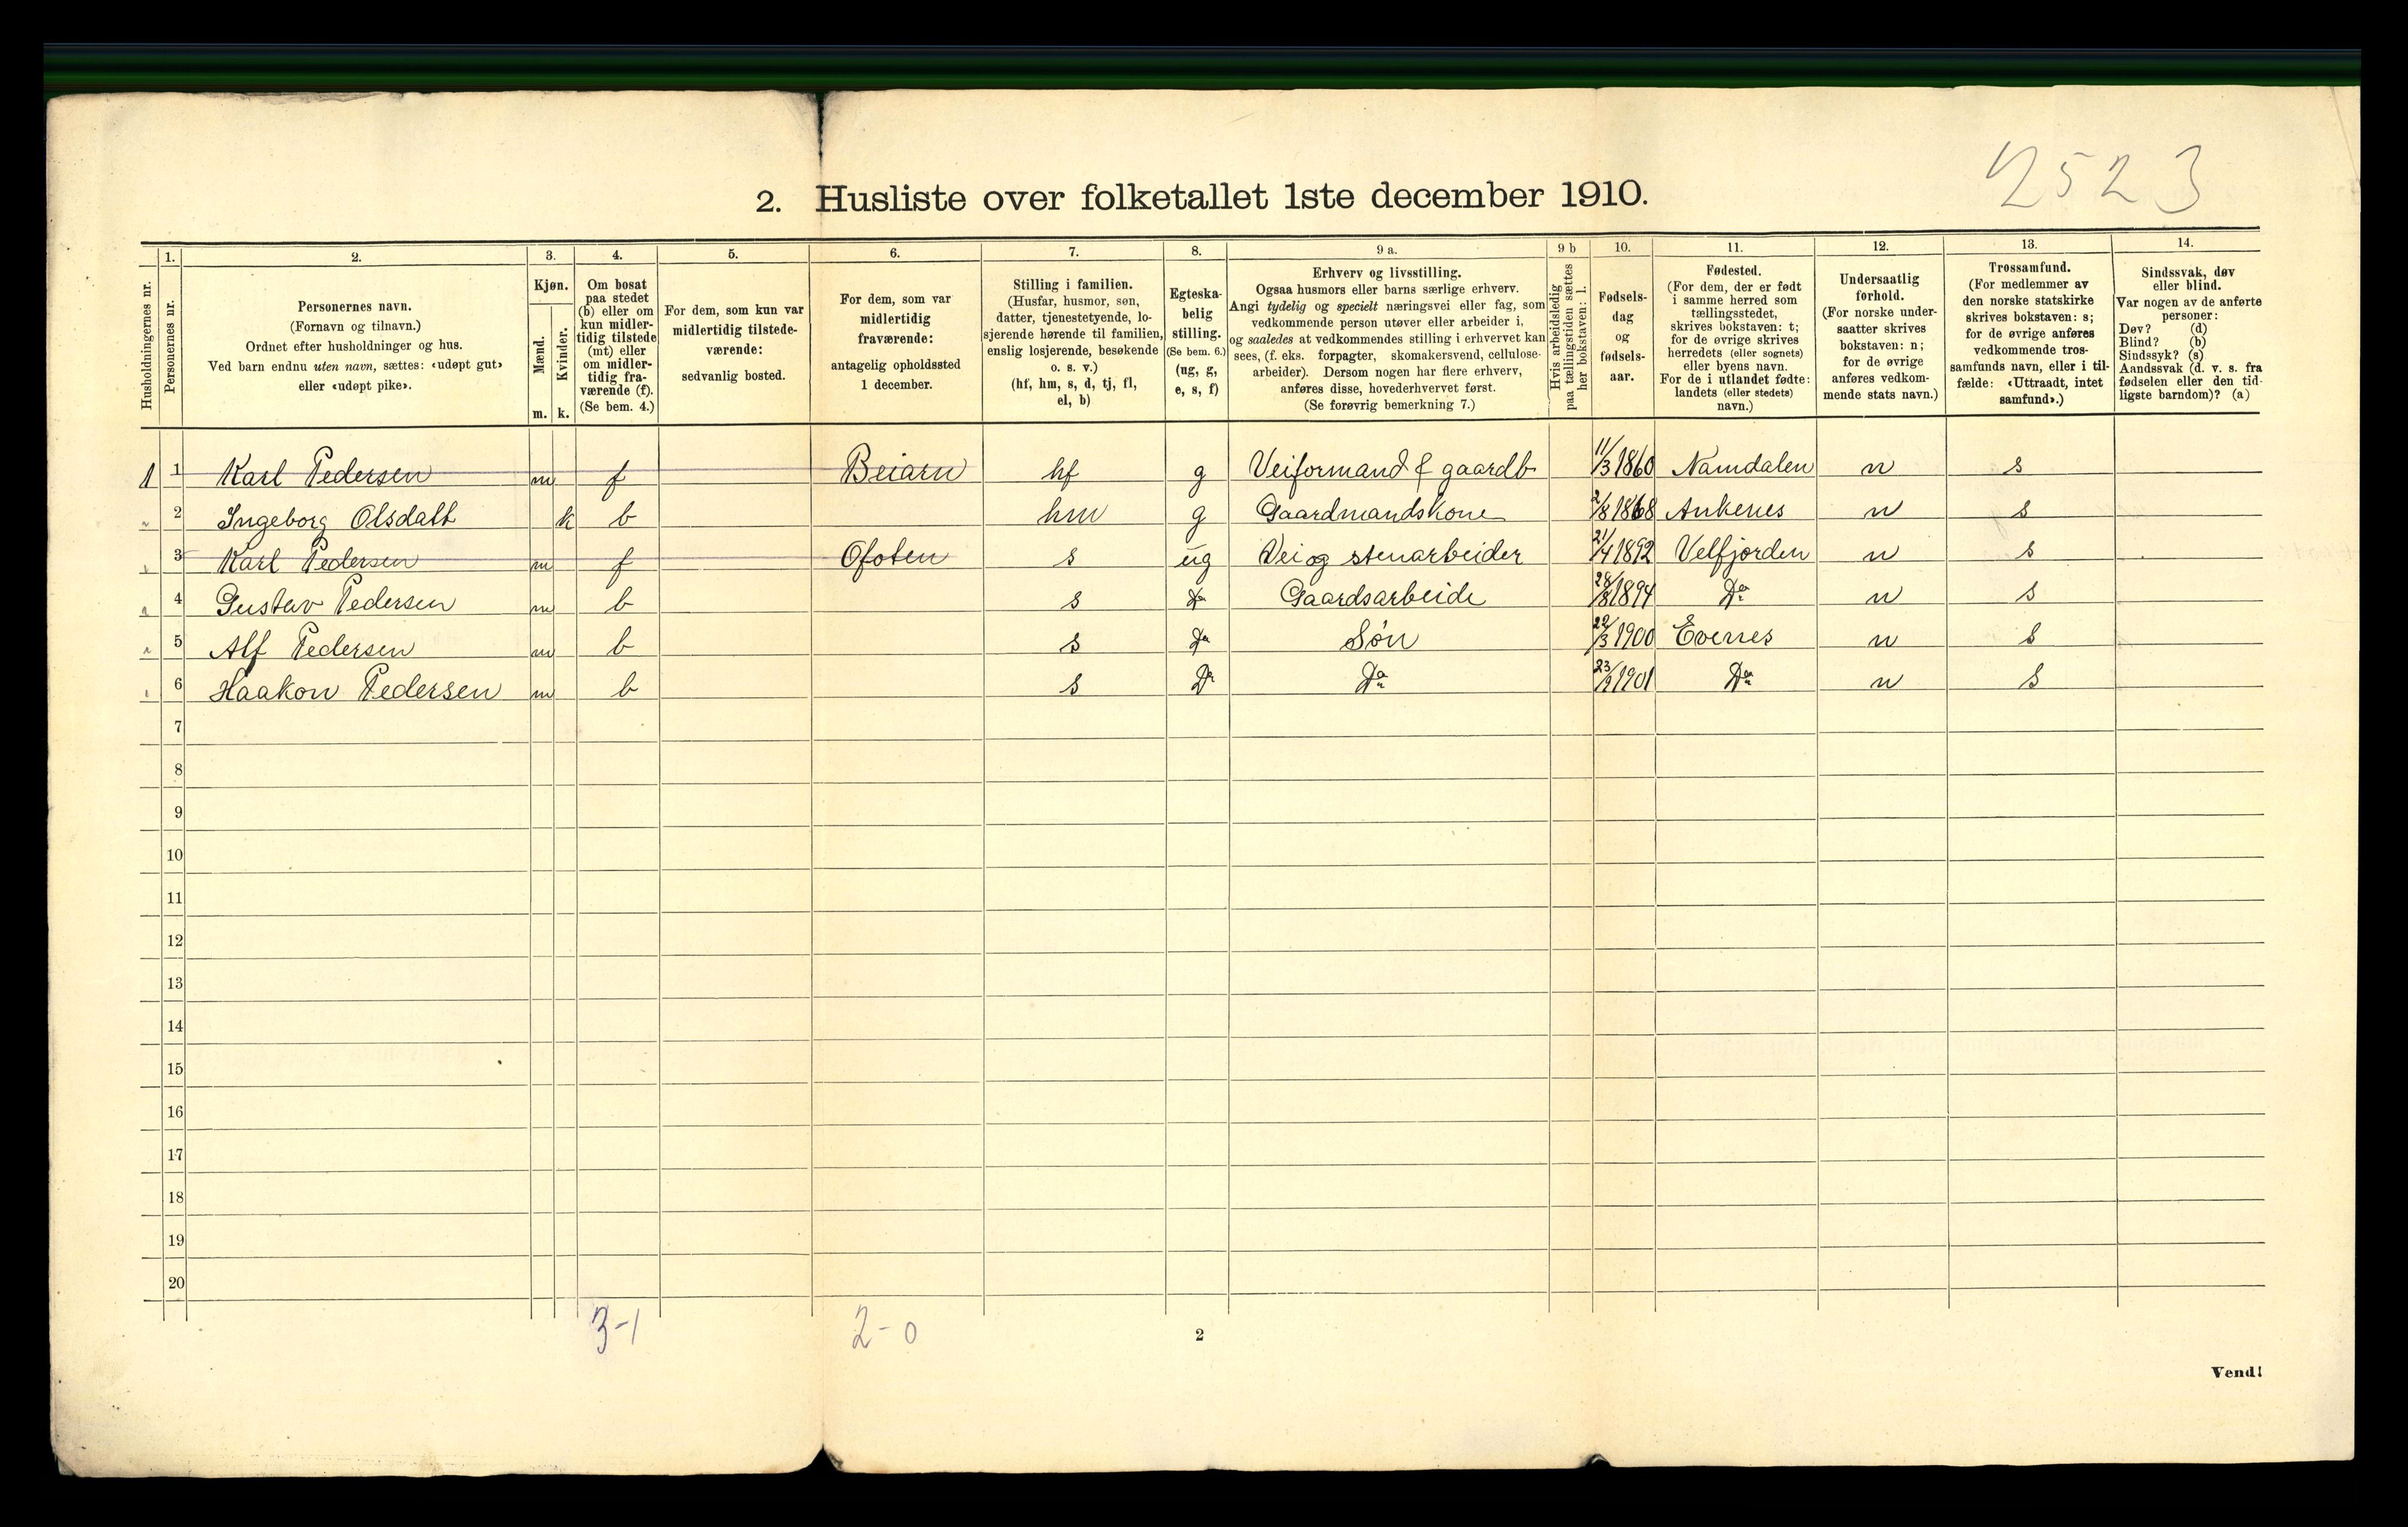 2523
2. Husliste over folketallet 1ste december 1910.
Husholdningernes nr.
1.
Personernes nr.
2.
Personernes navn.
(Fornavn og tilnavn.)
Ordnet efter husholdninger og hus.
Ved barn endnu uten navn, sættes: «udøpt gut»
eller «udøpt pike».
3.
Kjøn.
Mænd.
Kvinder.
m. k.
4.
Om bosat
paa stedet
(b) eller om
kun midler-
tidig tilstede
(mt) eller
om midler-
tidig fra-
værende (f).
(Se bem. 4.)
5.
For dem, som kun var
midlertidig tilstede-
værende:
sedvanlig bosted.
6.
For dem, som var
midlertidig
fraværende:
antagelig opholdssted
1 december.
7.
Stilling i familien.
(Husfar, husmor, søn,
datter, tjenestetyende, lo-
sjerende hørende til familien,
enslig losjerende, besøkende
o. s. v.)
(hf, hm, s, d, tj, fl,
el, b)
8.
Egteska-
belig
stilling.
(Se bem. 6.)
(ug, g,
e, s, f)
9 a.
Erhverv og livsstilling.
Ogsaa husmors eller barns særlige erhverv.
Angi tydelig og specielt næringsvei eller fag, som
vedkommende person utøver eller arbeider i,
og saaledes at vedkommendes stilling i erhvervet kan
sees, (f. eks. forpagter, skomakersvend, cellulose-
arbeider). Dersom nogen har flere erhverv,
anføres disse, hovederhvervet først.
(Se forøvrig bemerkning 7.)
9 b
Hvis arbeidsledig
paa tællingstiden sættes
her bokstaven: l.
10.
Fødsels-
dag
og
fødsels-
aar.
11.
Fødested.
(For dem, der er født
i samme herred som
tællingsstedet,
skrives bokstaven: t;
for de øvrige skrives
herredets (eller sognets)
eller byens navn.
For de i utlandet fødte:
landets (eller stedets)
navn.)
12.
Undersaatlig
forhold.
(For norske under-
saatter skrives
bokstaven: n;
for de øvrige
anføres vedkom-
mende stats navn.)
13.
Trossamfund.
(For medlemmer av
den norske statskirke
skrives bokstaven: s;
for de øvrige anføres
vedkommende tros-
samfunds navn, eller i til-
fælde: «Uttraadt, intet
samfund».)
14.
Sindssvak, døv
eller blind.
Var nogen av de anførte
personer:
Døv? (d)
Blind? (b)
Sindssyk? (s)
Aandssvak (d. v. s. fra
fødselen eller den tid-
ligste barndom)? (a)
1 1 Karl Pedersen m f Beiarn hf g Veiformand & gaardb 11/3 1860 Namdalen n s
" 2 Ingeborg Olsdatt k b hm g Gaardmandskone 2/8 1868 Ankenes n s
" 3 Karl Pedersen m f Ofoten s ug Vei og stenarbeider 21/4 1892 Velfjorden n s
" 4 Gustav Pedersen m b s Do Gaardsarbeide 28/8 1894 Do n s
" 5 Alf Pedersen m b s Do Søn 22/3 1900 Evenes n s
" 6 Haakon Pedersen m b s Do Do 23/9 1901 Do n s
7
8
9
10
11
12
13
14
15
16
17
18
19
20
3-1 2-0
2
Vend!